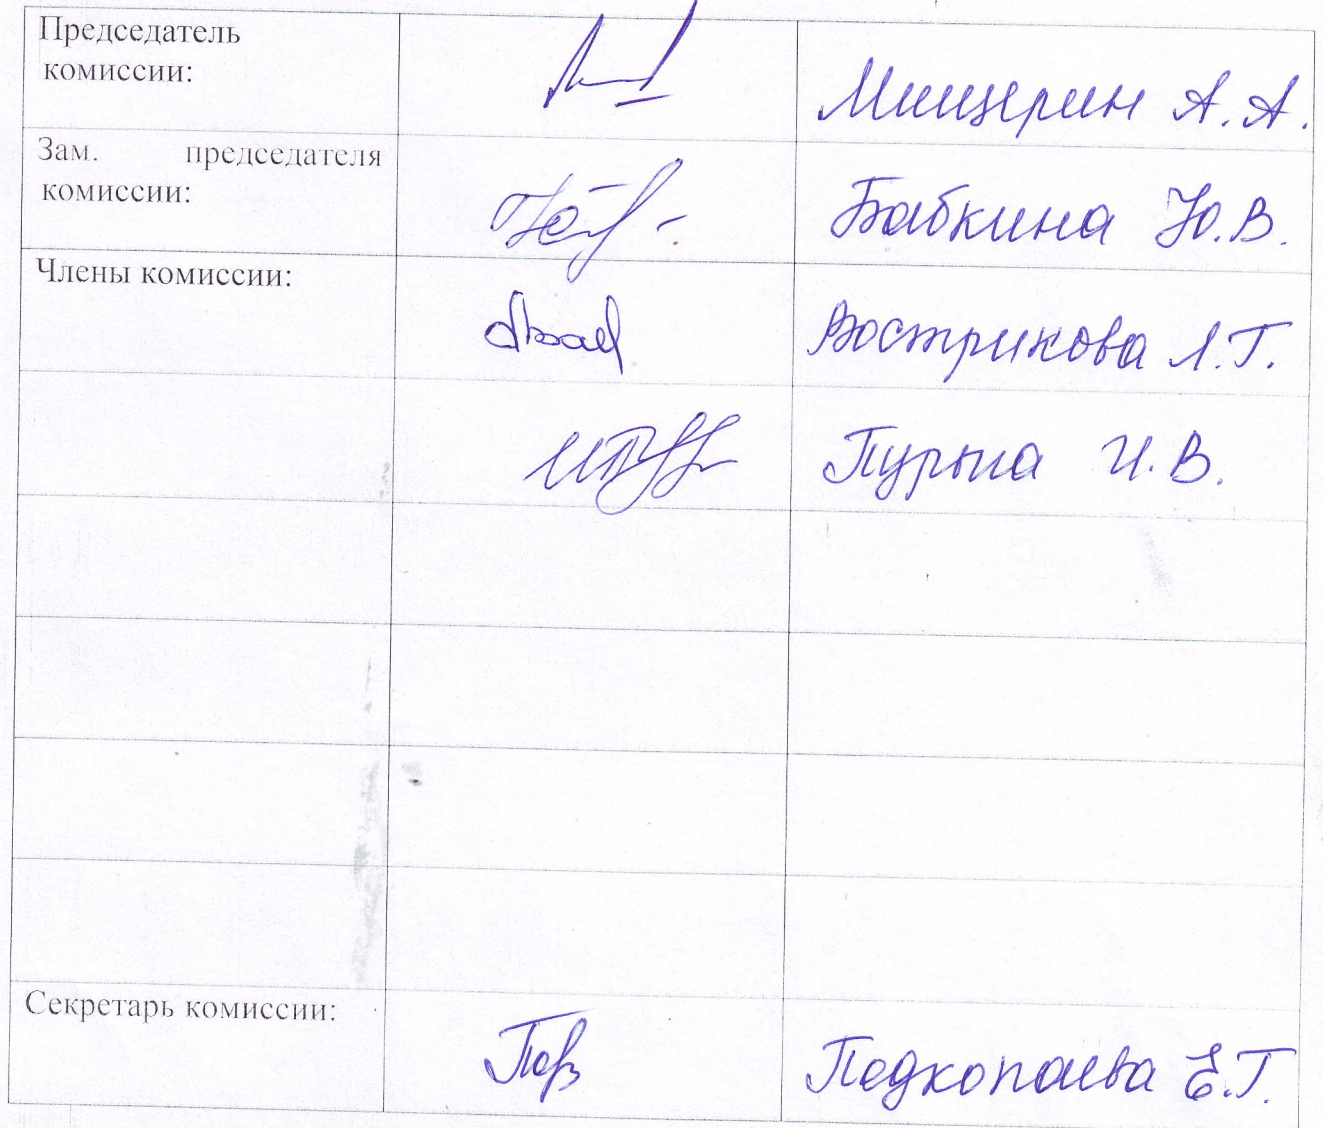 Председатель
комиссии:
Мищерин А.А.
Зам. председателя
комиссии:
Бабкина Ю.В.
Члены комиссии:
Вострикова Л.Г.
И.В.
Секретарь комиссии:
Подкопаева Е.Г.